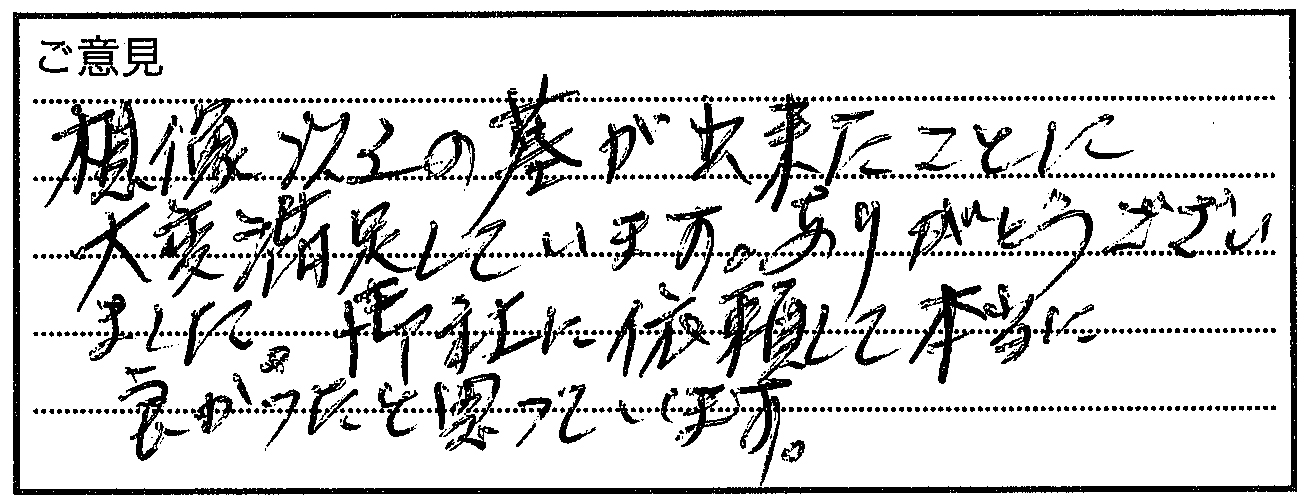 ご意見
想像以上の墓が出来たことに
大変満足しています。ありがとうござい
ました。御社に依頼して本当に
良かったと思っています。